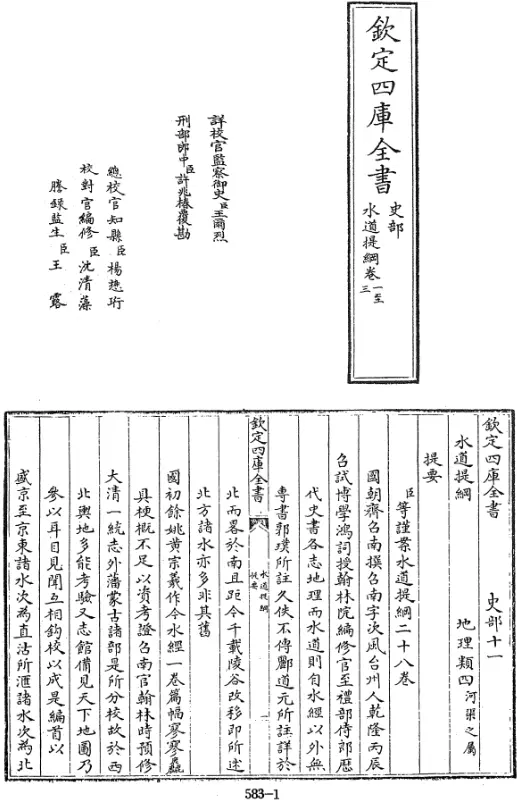 欽定四庫全書
史部
水道提綱卷一至三
詳校官監察御史臣王爾烈
刑部郎中臣許兆椿覆勘
總校官知縣臣楊懋珩
校對官編修臣沈清藻
謄錄監生臣王露
欽定四庫全書 史部十一
水道提綱 地理類四河渠之屬
提要
臣等謹案水道提綱二十八卷
國朝齊召南撰召南字次風台州人乾隆丙辰
召試博學鴻詞授翰林院編修官至禮部侍郎歷
代史書各志地理而水道則自水經以外無
專書郭璞所註久佚不傳酈道元所註詳於
欽定四庫全書 水道提綱提要 一
北而畧於南且距今千載陵谷改移即所述
北方諸水亦多非其舊
國初餘姚黃宗羲作今水經一卷篇幅寥寥粗
具梗概不足以資考證召南官翰林時預修
大清一統志外藩蒙古諸部是所分校故於西
北輿地多能考驗又志館備見天下地圖乃
參以耳目見聞互相鈎校以成是編首以
盛京至京東諸水次為直沽所滙諸水次為北
583-1